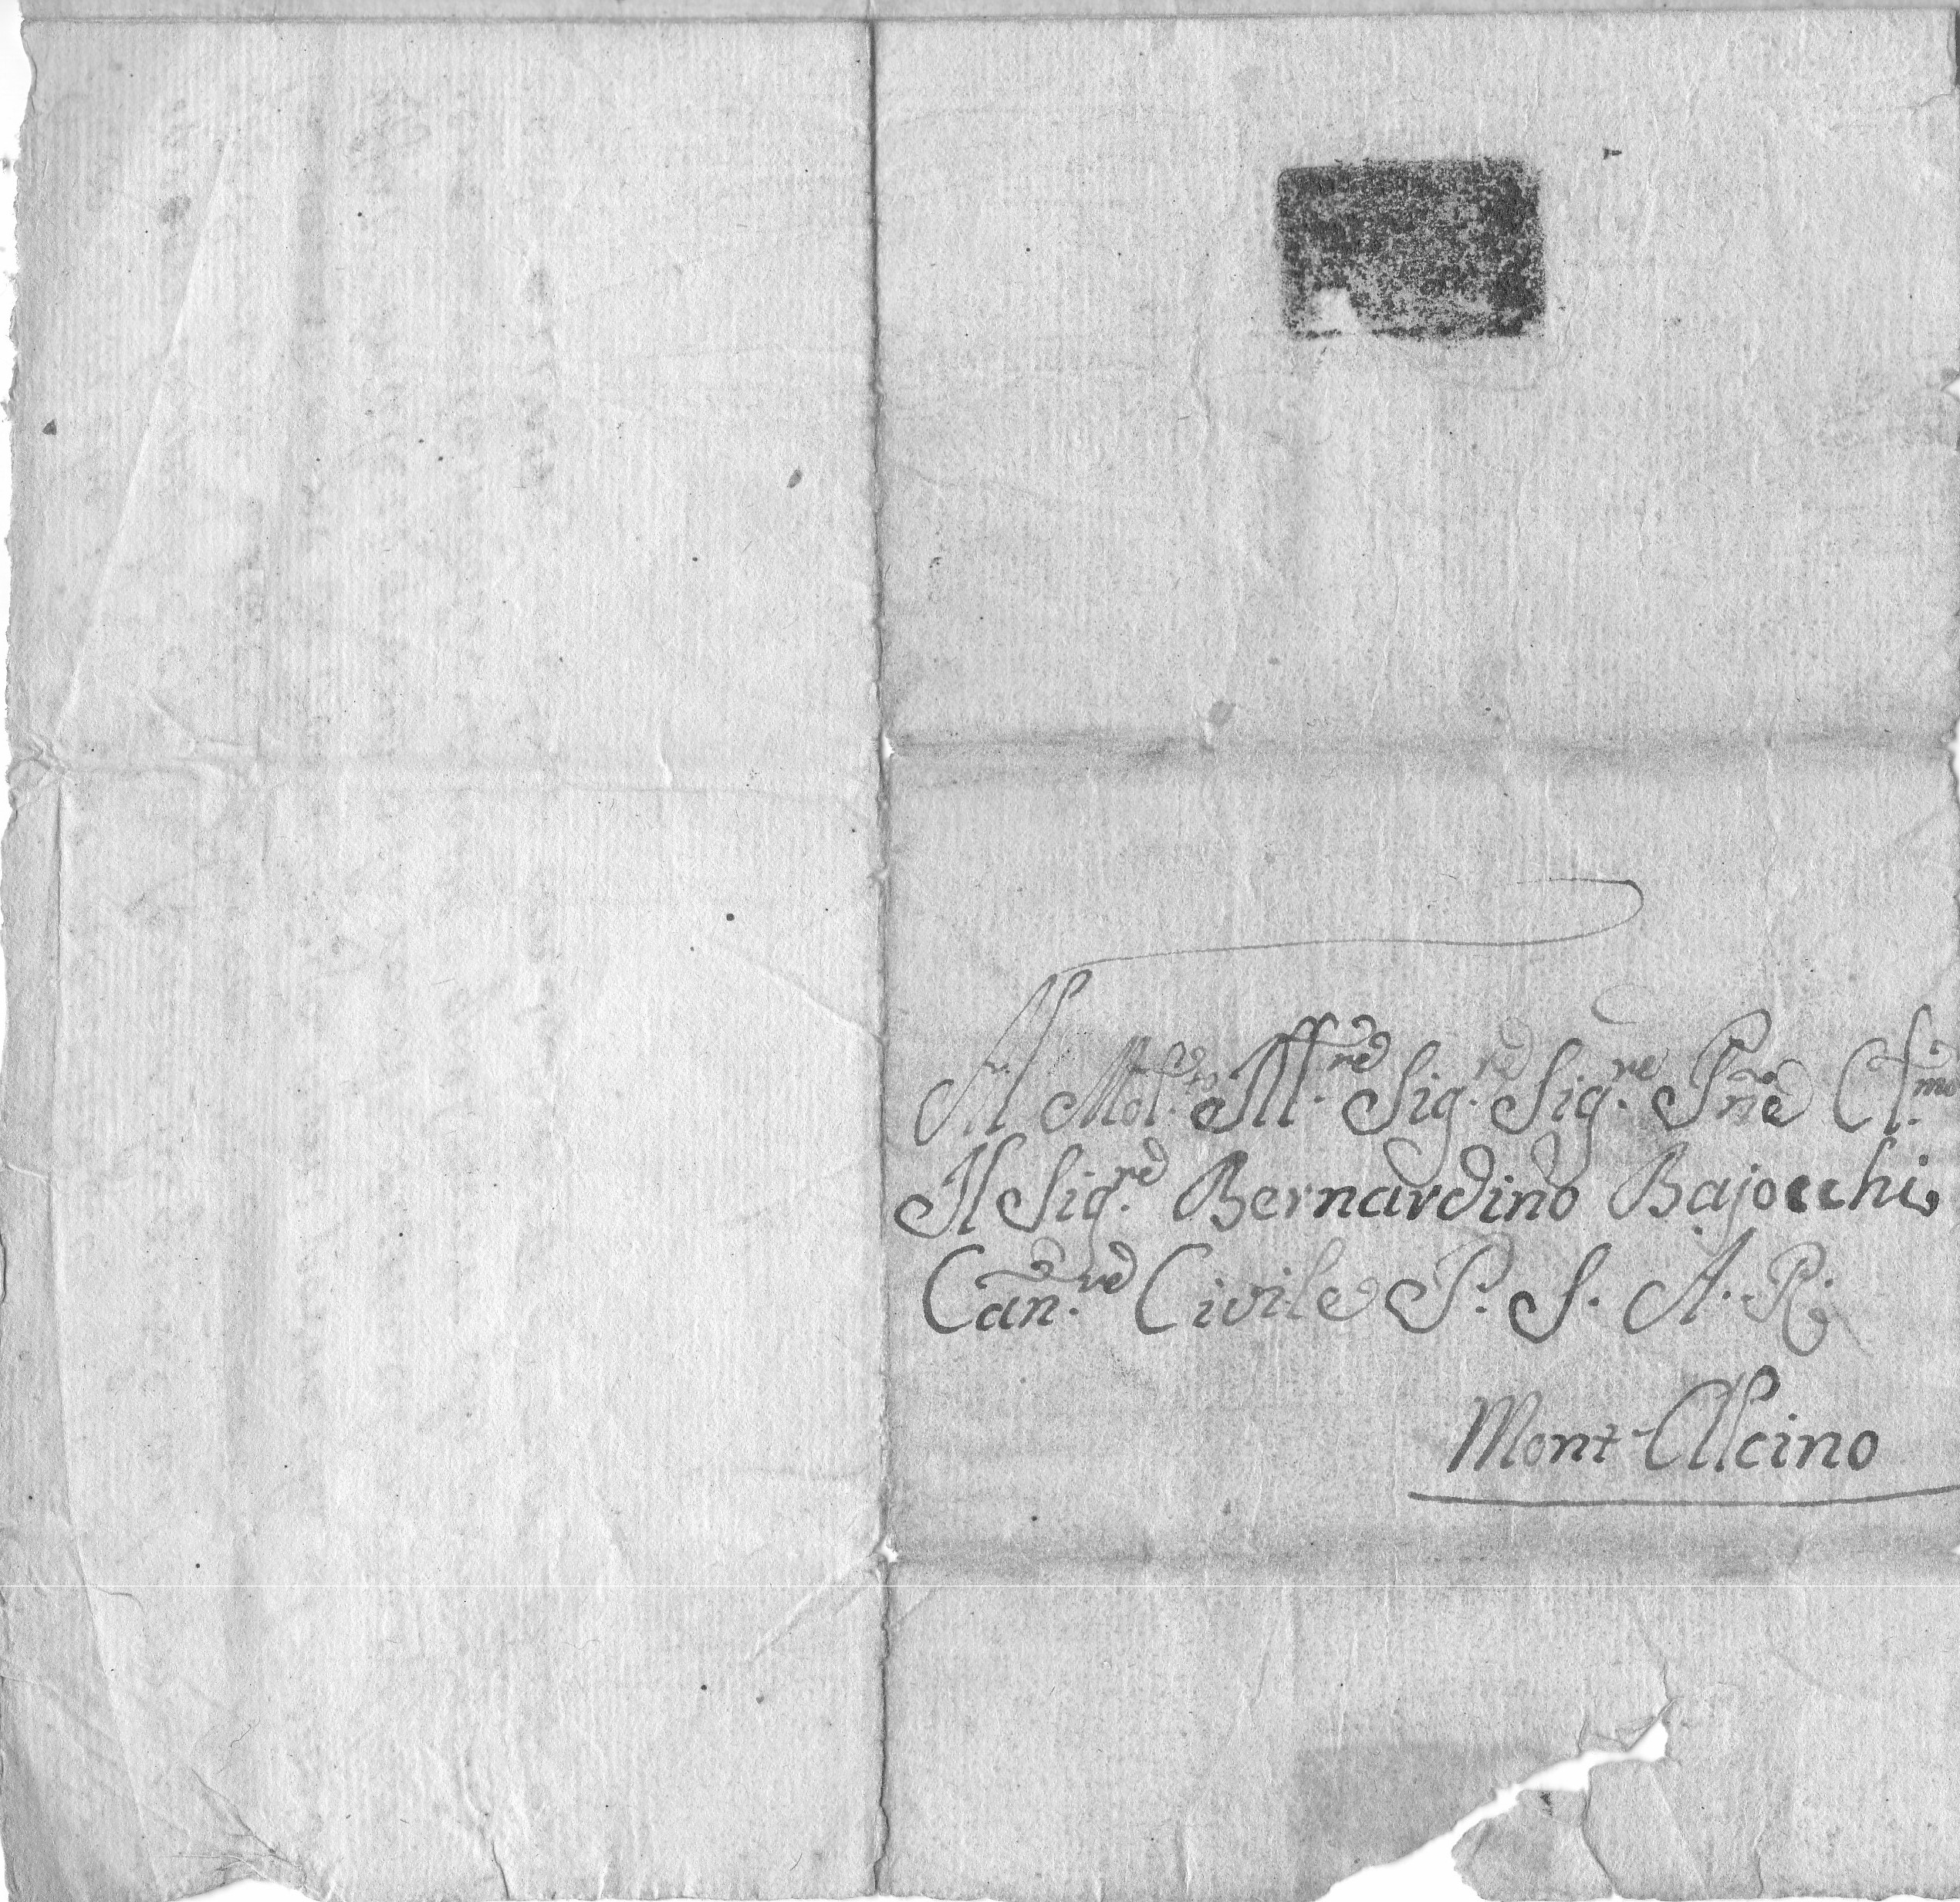 Al Mol.to Ill.re Sig.re Sig.re Pne Cl.mo
Il Sig.re Bernardino Bajocchi
Can.re Civile P. S. A. R.
Mont-Alcino